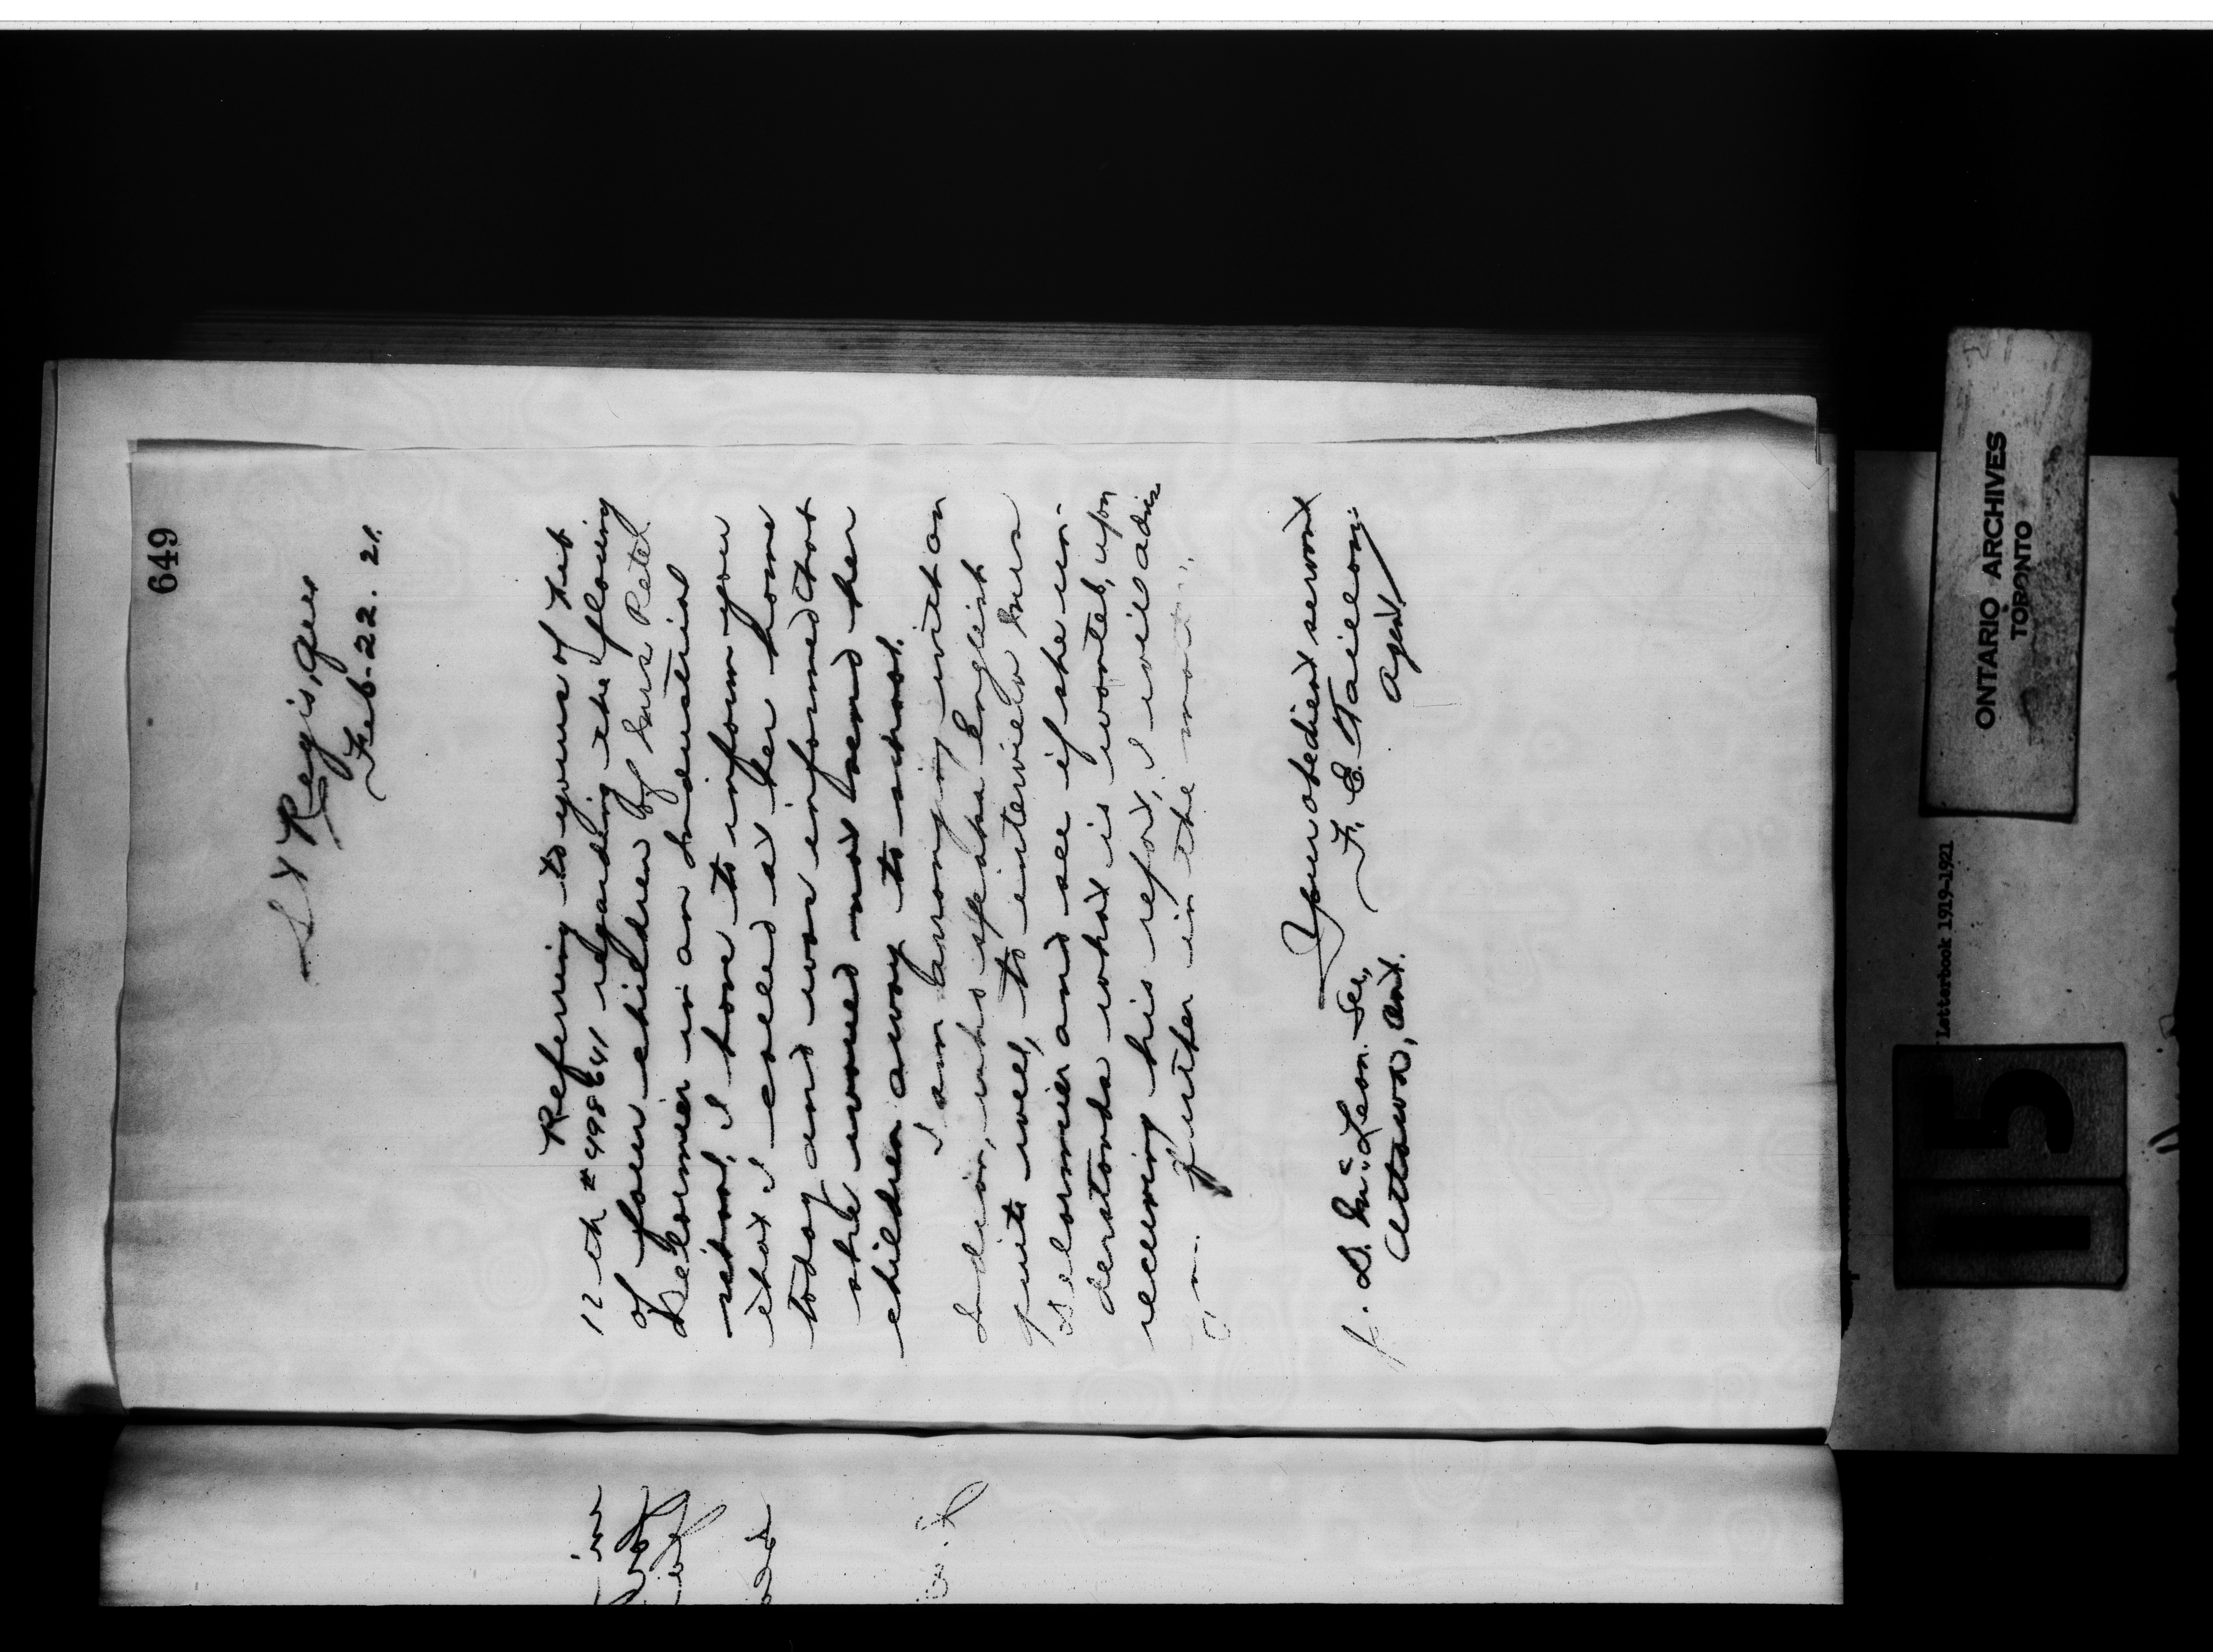 649
St Regis, Que
Feb. 22. 21.
Referring to yours of Feb
12th # 498641 regarding the placing
of four children of Mrs Peter
Delormier in an Industrial
school, I have to inform you
that I called at her home
today and was informed that
she would not send her
children away to school.
I am arranging with an
Indian, who speaks English
quite well, to interview Mrs
Delormier and see if she un-
derstands what is wanted, upon
receiving his report, I will advise
further in the
Your obedient servant
J. D. McLean. Sec,
F. E. Taillon,
Ottawa, Ont.
Agent
ONTARIO ARCHIVES
TORONTO
Letterbook 1919-1921
115